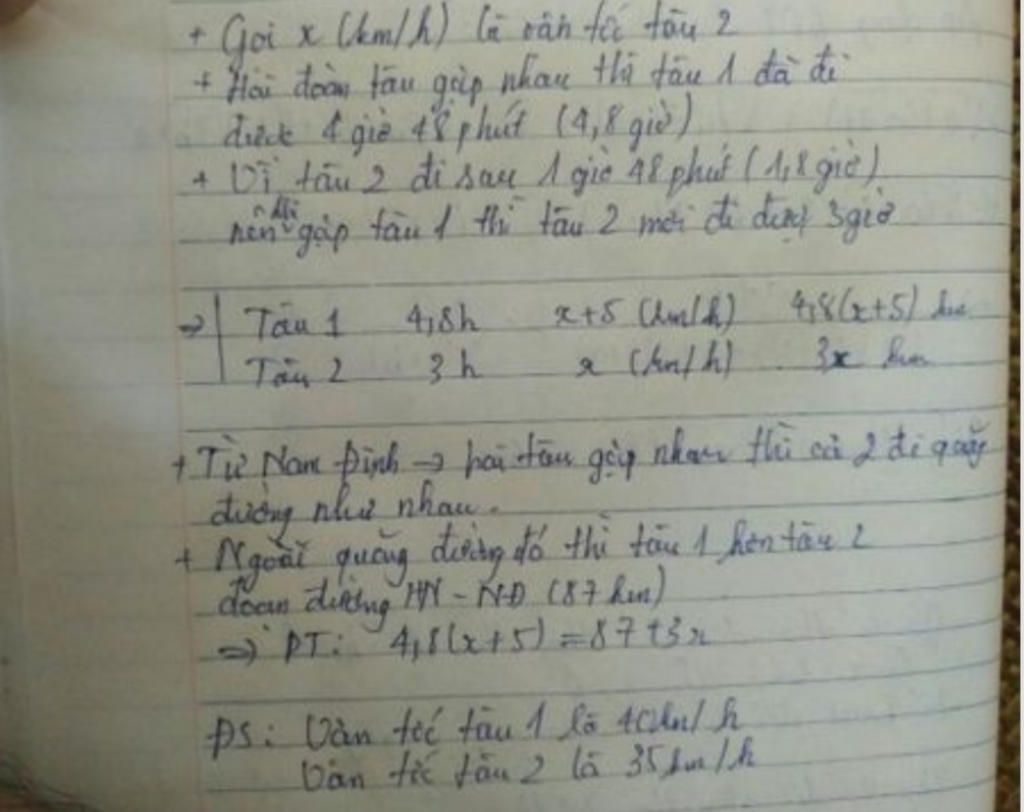 + Gọi x (km/h) là vận tốc tàu 2
+ Hai đoàn tàu gặp nhau thì tàu 1 đã đi
được 4 giờ 48 phút (4,8 giờ)
+ Vì tàu 2 đi sau 1 giờ 48 phút (1,8 giờ)
nên khi gặp tàu 1 thì tàu 2 mới đi được 3 giờ
=> Tàu 1 4,8h x+5 (km/h) 4,8(x+5) km
Tàu 2 3h x (km/h) 3x km
+ Từ Nam Định → hai tàu gặp nhau thì cả 2 đi quãng
đường như nhau.
+ Ngoài quãng đường đó thì tàu 1 hơn tàu 2
đoạn đường HN - NĐ (87 km)
=> PT: 4,8(x+5) = 87+3x
ĐS: Vận tốc tàu 1 là 40km/h
Vận tốc tàu 2 là 35km/h